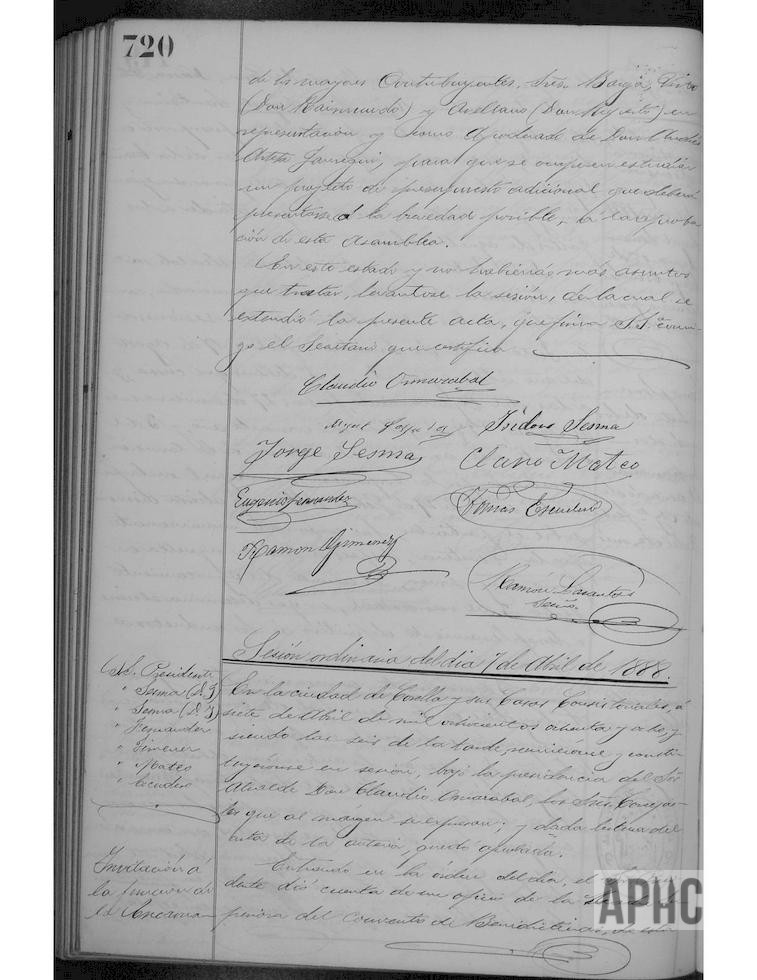 720
de los mayores Contribuyentes, Sres. Borja, Vivo
(Don Raimundo) y Arellano (Don
representación y como Apoderado de Don Andrés
Arteta Jauregui, para que se ocupen estudiar
un proyecto de presupuesto adicional que deberá
presentarse á la brevedad posible, á la aproba
ción de esta Asamblea.
En este estado y no habiendo más asuntos
que tratar, levantose la sesión, de la cual se
extendió la presente acta, que firma S.Sª conmi-
go el Secretario que certifico
Claudio Omarabal
Miguel
Isidoro Sesma
Jorge Sesma
Claro Mateo
Eugenio Fernandez
Tomas Escudero
Ramon Gimenez
Ramón Lasantos
Srio.
Sesión ordinaria del dia 7 de Abril de 1888.
S.S. Presidente
" Sesma (D. J)
" Sesma (D. I)
" Fernandez
" Gimenez
" Mateo
" Escudero
En la ciudad de Corella y sus Casas Consistoriales, á
siete de Abril de mil ochocientos ochenta y ocho, y
siendo las seis de la tarde, reunieronse y consti-
tuyéronse en sesión, bajo la presidencia del Sr
Alcalde Don Claudio Omarabal, los Sres. Conceja-
les que al margen se expresan; y dada lectura del
acta de la anterior, quedó aprobada.
Invitación á
la función de
la Encarna
Entrando en la órden del dia, el
dente dió cuenta de un oficio de la
periora del Convento de Benedictinas, de esta
APHC